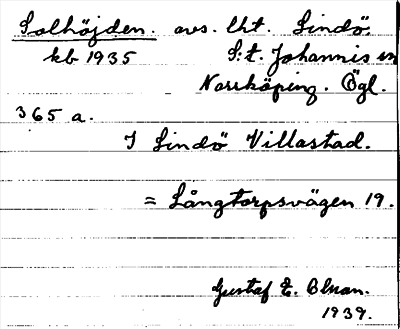 Solhöjden. avs. lht. Lindö,
kb 1935 S:t. Johannis sn
Norrköping. Ögl.
365 a.
I Lindö Villastad.
= Långtorpsvägen 19.
Gustaf E.
1939.